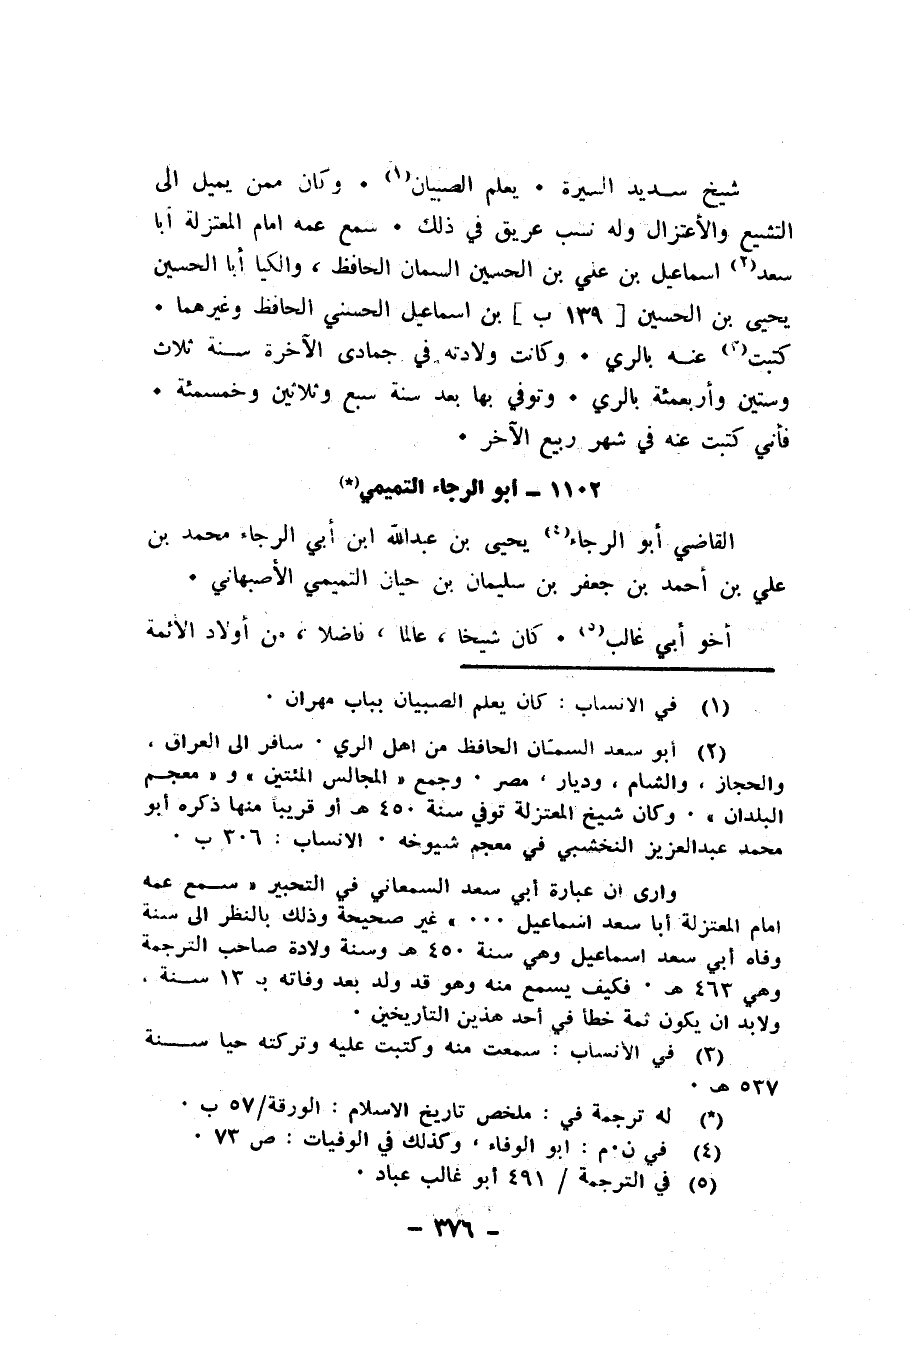 شيخ سديد السيرة ٠ يعلم الصبيان(١) ٠ وكان ممن يميل الى
التشيع والأعتزال وله نسب عريق في ذلك ٠ سمع عمه امام المعتزلة أبا
سعد(٢) اسماعيل بن علي بن الحسين السمان الحافظ ، والكيا أبا الحسين
يحيى بن الحسين [ ١٣٩ ب ] بن اسماعيل الحسني الحافظ وغيرهما ٠
كتبت(٣) عنه بالري ٠ وكانت ولادته في جمادى الآخرة سنة ثلاث
وستين وأربعمئة بالري ٠ وتوفي بها بعد سنة سبع وثلاثين وخمسمئة ٠
فأني كتبت عنه في شهر ربيع الآخر ٠
١١٠٢ – ابو الرجاء التميمي(*)
القاضي أبو الرجاء(٤) يحيى بن عبدالله ابن أبي الرجاء محمد بن
علي بن أحمد بن جعفر بن سليمان بن حيان التميمي الأصبهاني ٠
أخو أبي غالب(٥) ٠ كان شيخا ، عالما ، فاضلا ، من أولاد الأئمة
(١) في الانساب : كان يعلم الصبيان بباب مهران ٠
(٢) أبو سعد السمتان الحافظ من اهل الري ٠ سافر الى العراق ،
والحجاز ، والشام ، وديار ، مصر ٠ وجمع « المجالس المئتين » و « معجم
البلدان » ٠ وكان شيخ المعتزلة توفي سنة ٤٥٠ هـ أو قريبا منها ذكره أبو
محمد عبدالعزيز النخشبي في معجم شيوخه ٠ الانساب : ٣٠٦ ب ٠
وارى ان عبارة أبي سعد السمعاني في التحبير « سمع عمه
امام المعتزلة أبا سعد اسماعيل ٠٠٠ » غير صحيحة وذلك بالنظر الى سنة
وفاه أبي سعد اسماعيل وهي سنة ٤٥٠ هـ وسنة ولادة صاحب الترجمة
وهي ٤٦٣ هـ ٠ فكيف يسمع منه وهو قد ولد بعد وفاته بـ ١٣ سنة .
ولابد ان يكون ثمة خطأ في أحد هذين التاريخين ٠
(٣) في الأنساب : سمعت منه وكتبت عليه وتركته حيا سنة
٥٣٧ هـ ٠
(*) له ترجمة في : ملخص تاريخ الاسلام : الورقة/٥٧ ب ٠
(٤) في ن٠م : ابو الوفاء ، وكذلك في الوفيات : ص ٧٣ ٠
(٥) في الترجمة / ٤٩١ أبو غالب عباد ٠
– ٣٧٦ –